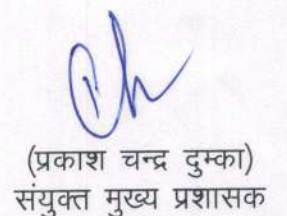 (प्रकाश चन्द्र दुम्का)
संयुक्त मुख्य प्रशासक